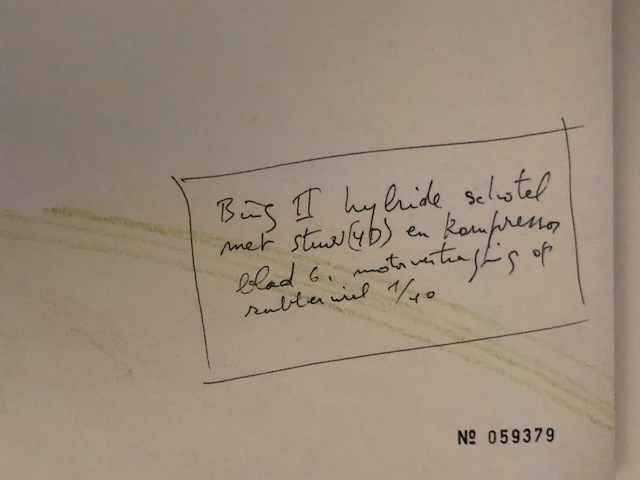 Bing II hybride schotel
met stuw(4D) en kompressor
blad 6, motorvertraging op
rubberwiel 1/40
Nº 059379